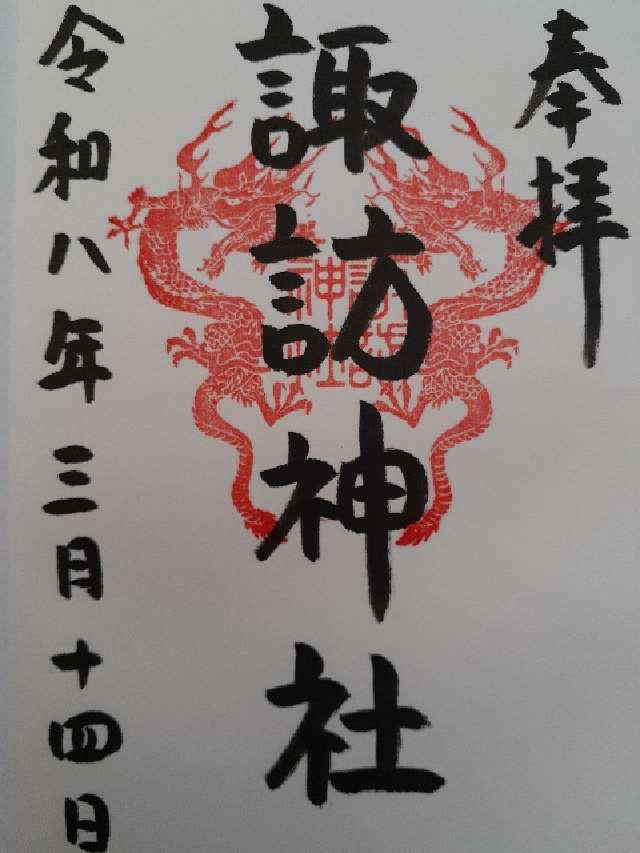 奉拝
諏訪神社
令和八年三月十四日